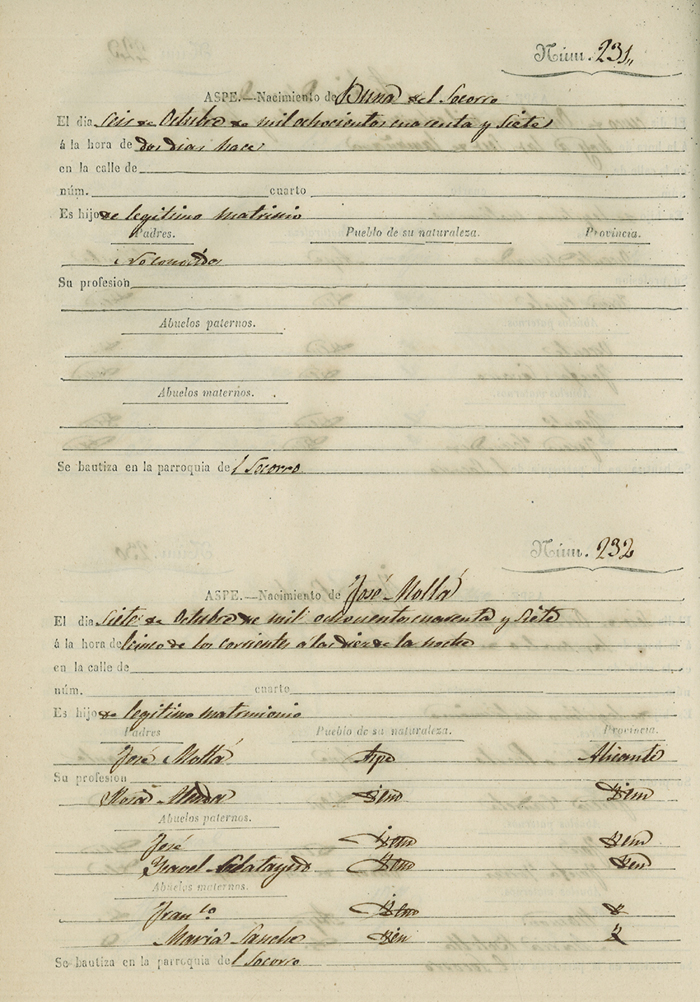 Núm. 231,,
ASPE.—Nacimiento de Bruno del Socorro
El dia seis de Octubre de mil ochocientos cuarenta y siete
á la hora de dos dias hace
en la calle de
núm. cuarto
Es hijo de legitimo matrinio
Padres. Pueblo de su naturaleza. Provincia.
No conocidos
Su profesion
Abuelos paternos.
Abuelos maternos.
Se bautiza en la parroquia de l Socorro
Núm. 232
ASPE.—Nacimiento de José Mollá
El dia siete de Octubre de mil ochocientos cuarenta y siete
á la hora de cinco de los corrientes a las diez de la noche
en la calle de
núm. cuarto
Es hijo de legitimo matrimonio
Padres Pueblo de su naturaleza. Provincia.
José Mollá Aspe Alicante
Su profesion
Rosa Ydem Ydem
Abuelos paternos.
José Ydem Ydem
Ysavel Calatayud Ydem Yden
Abuelos maternos.
Fran.co Ydem
Maria Sanchez Yden
Se bautiza en la parroquia de l Socorro